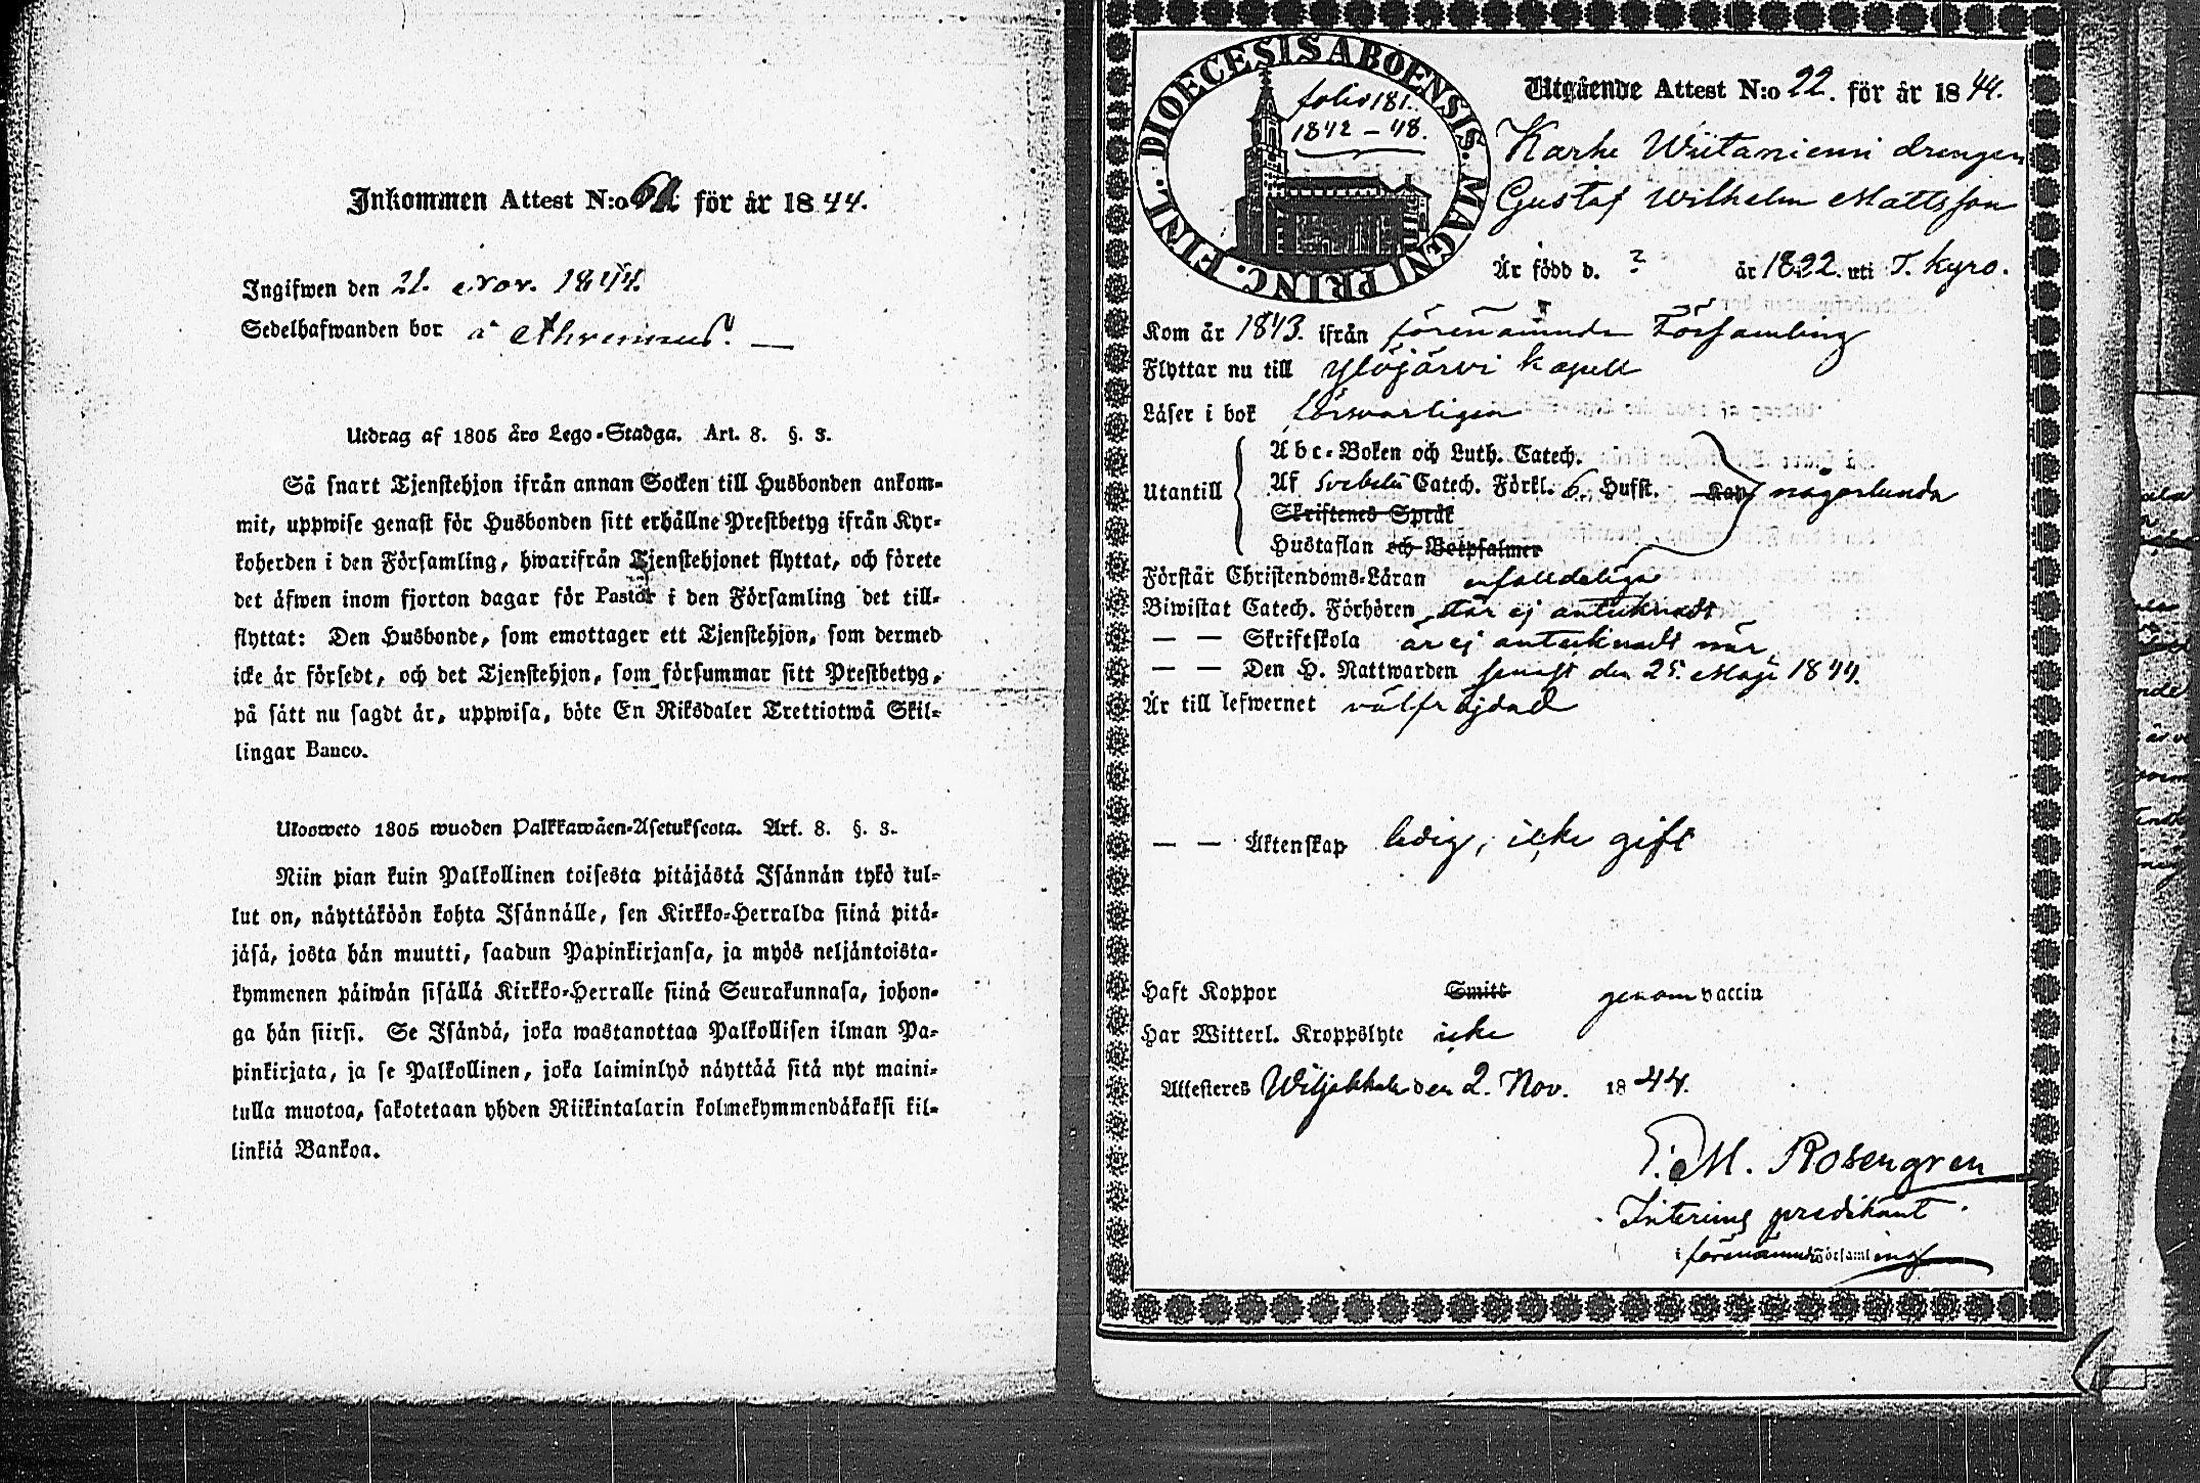 Inkommen Attest N:o för år 1844.
Ingifwen den 21. Nov. 1844.
Sedelhafwanden bor å Ahrenius.
Utdrag af 1805 års Lego-Stadga. Art. 8. §. 3.
Så snart Tjenstehjon ifrån annan Socken till Husbonden ankom-
mit, uppwise genast för Husbonden sitt erhållne Prestbetyg ifrån Kyr-
koherden i den Församling, hwarifrån Tjenstehjonet flyttat, och förete
det äfwen inom fjorton dagar för Pastor i den Församling det till-
flyttat: Den Husbonde, som emottager ett Tjenstehjon, som dermed
icke är försedt, och det Tjenstehjon, som försummar sitt Prestbetyg,
på sätt nu sagdt är, uppwisa, böte En Riksdaler Trettiotwå Skil-
lingar Banco.
Ulosweto 1805 wuoden Palkkawäen-Asetuksesta. Art. 8. §. 3.
Niin pian kuin Palkollinen toisesta pitäjästä Isännän tykö tul-
lut on, näyttäköön kohta Isännälle, sen Kirkko-Herralda siinä pitä-
jäsä, josta hän muutti, saadun Papinkirjansa, ja myös neljäntoista-
kymmenen päiwän sisällä Kirkko-Herralle siinä Seurakunnasa, johon-
ga hän siirsi. Se Isändä, joka wastanottaa Palkollisen ilman Pa-
pinkirjata, ja se Palkollinen, joka laiminlyö näyttää sitä nyt maini-
tulla muotoa, sakotetaan yhden Riikintalarin kolmekymmendäkaksi kil-
linkiä Bankoa.
DIOECESIS ABOENSIS. MAGNI PRINC. FINL.
folio 181.
1842-48.
Utgående Attest N:o 22. för år 1844.
Karhe Wiitaniemi drengen
Gustaf Wilhelm Mattsson
Är född d. ? år 1822. uti T. Kyro.
Kom år 1843. ifrån förenämnde Församling
Flyttar nu till Ylöjärvi kapell
Läser i bok försvarligen
Utantill
Abc-Boken och Luth. Catech.
Af Svebelii Catech. Förkl. 6. Hufst. Kap. någorlunda
Skriftenes Språk
Hustaflan och Botpsalmer
Förstår Christendoms-Läran enfalldeliga
Biwistat Catech. Förhören står ej antecknadt
— — Skriftskola är ej antecknadt när
— — Den H. Nattwarden senast den 25. Maji 1844.
Är till lefwernet välfräjdad
— — Äktenskap ledig, icke gift
Haft Koppor Smitt genom vaccin
Har Witterl. Kroppslyte icke
Attesteres Wiljakkala den 2. Nov. 1844.
M. Rosengren
Interims predikant.
i förenämnde Församling